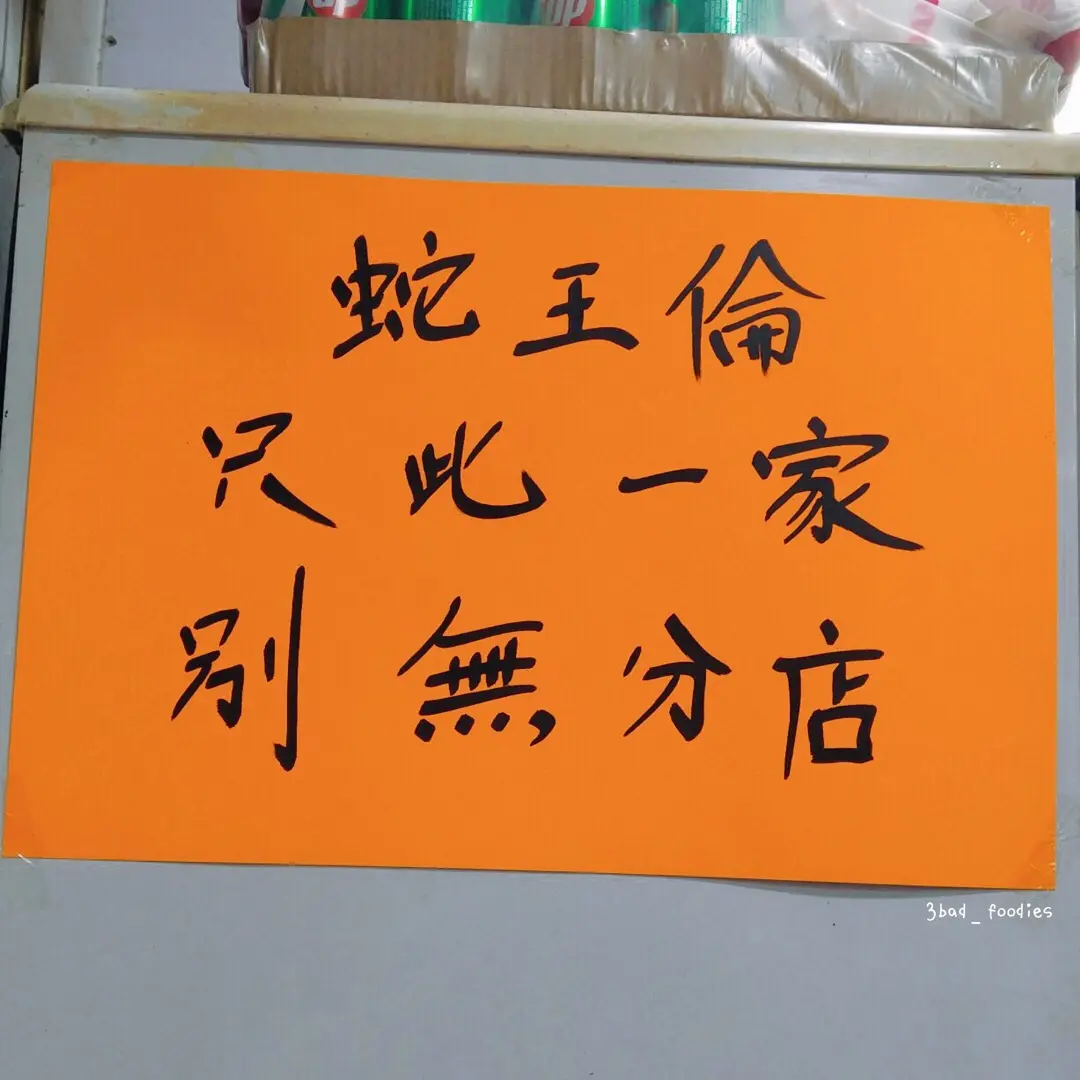 up
up
蛇王倫
只此一家
別無分店
3bad_foodies